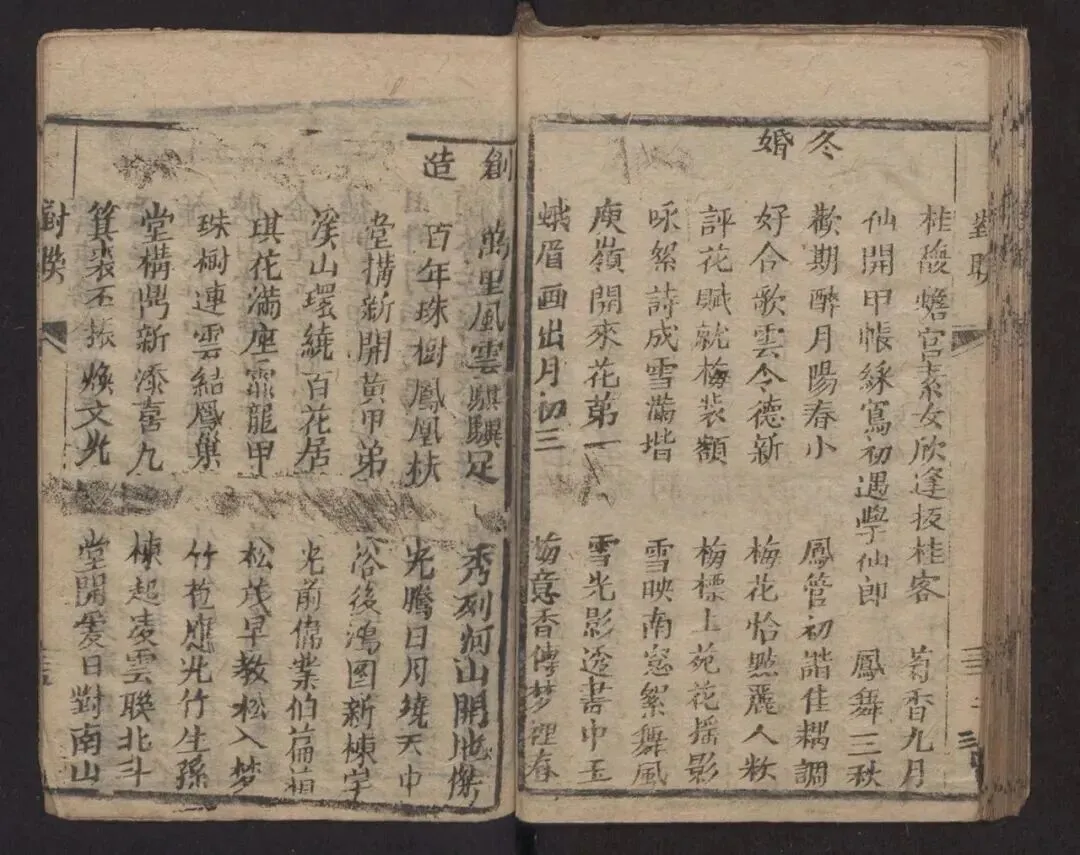 對聯
桂馥蟾宮素女欣逢扳桂客 菊香九月
仙開甲帳綵寫初遇學仙郎 鳳舞三秋
冬婚
歡期醉月陽春小 鳳管初諧佳耦調
好合歌雲令德新 梅花恰點麗人粧
評花賦就梅裝額 梅標上苑花搖影
咏絮詩成雪滿堦 雪映南窓絮舞風
庾嶺開來花第一 雪光影透書中玉
蛾眉画出月初三 梅意香傳梦裡春
創造
萬里風雲騏驥足 秀列河山開地
百年珠樹鳳凰扶 光騰日月繞天中
堂搆新開黃甲弟 浴後鴻圖新棟宇
溪山環繞百花居 光前偉業伯
琪花滿座霏龍甲 松茂早教松入梦
珠樹連雲結鳳巢 竹苞應光竹生孫
堂構鼎新添喜九 棟起凌雲聯北斗
箕裘丕振煥文光 堂開愛日對南山
對聯